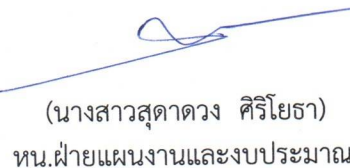 (นางสาวสุดาดวง ศิริโยธา)
หน.ฝ่ายแผนงานและงบประมาณ